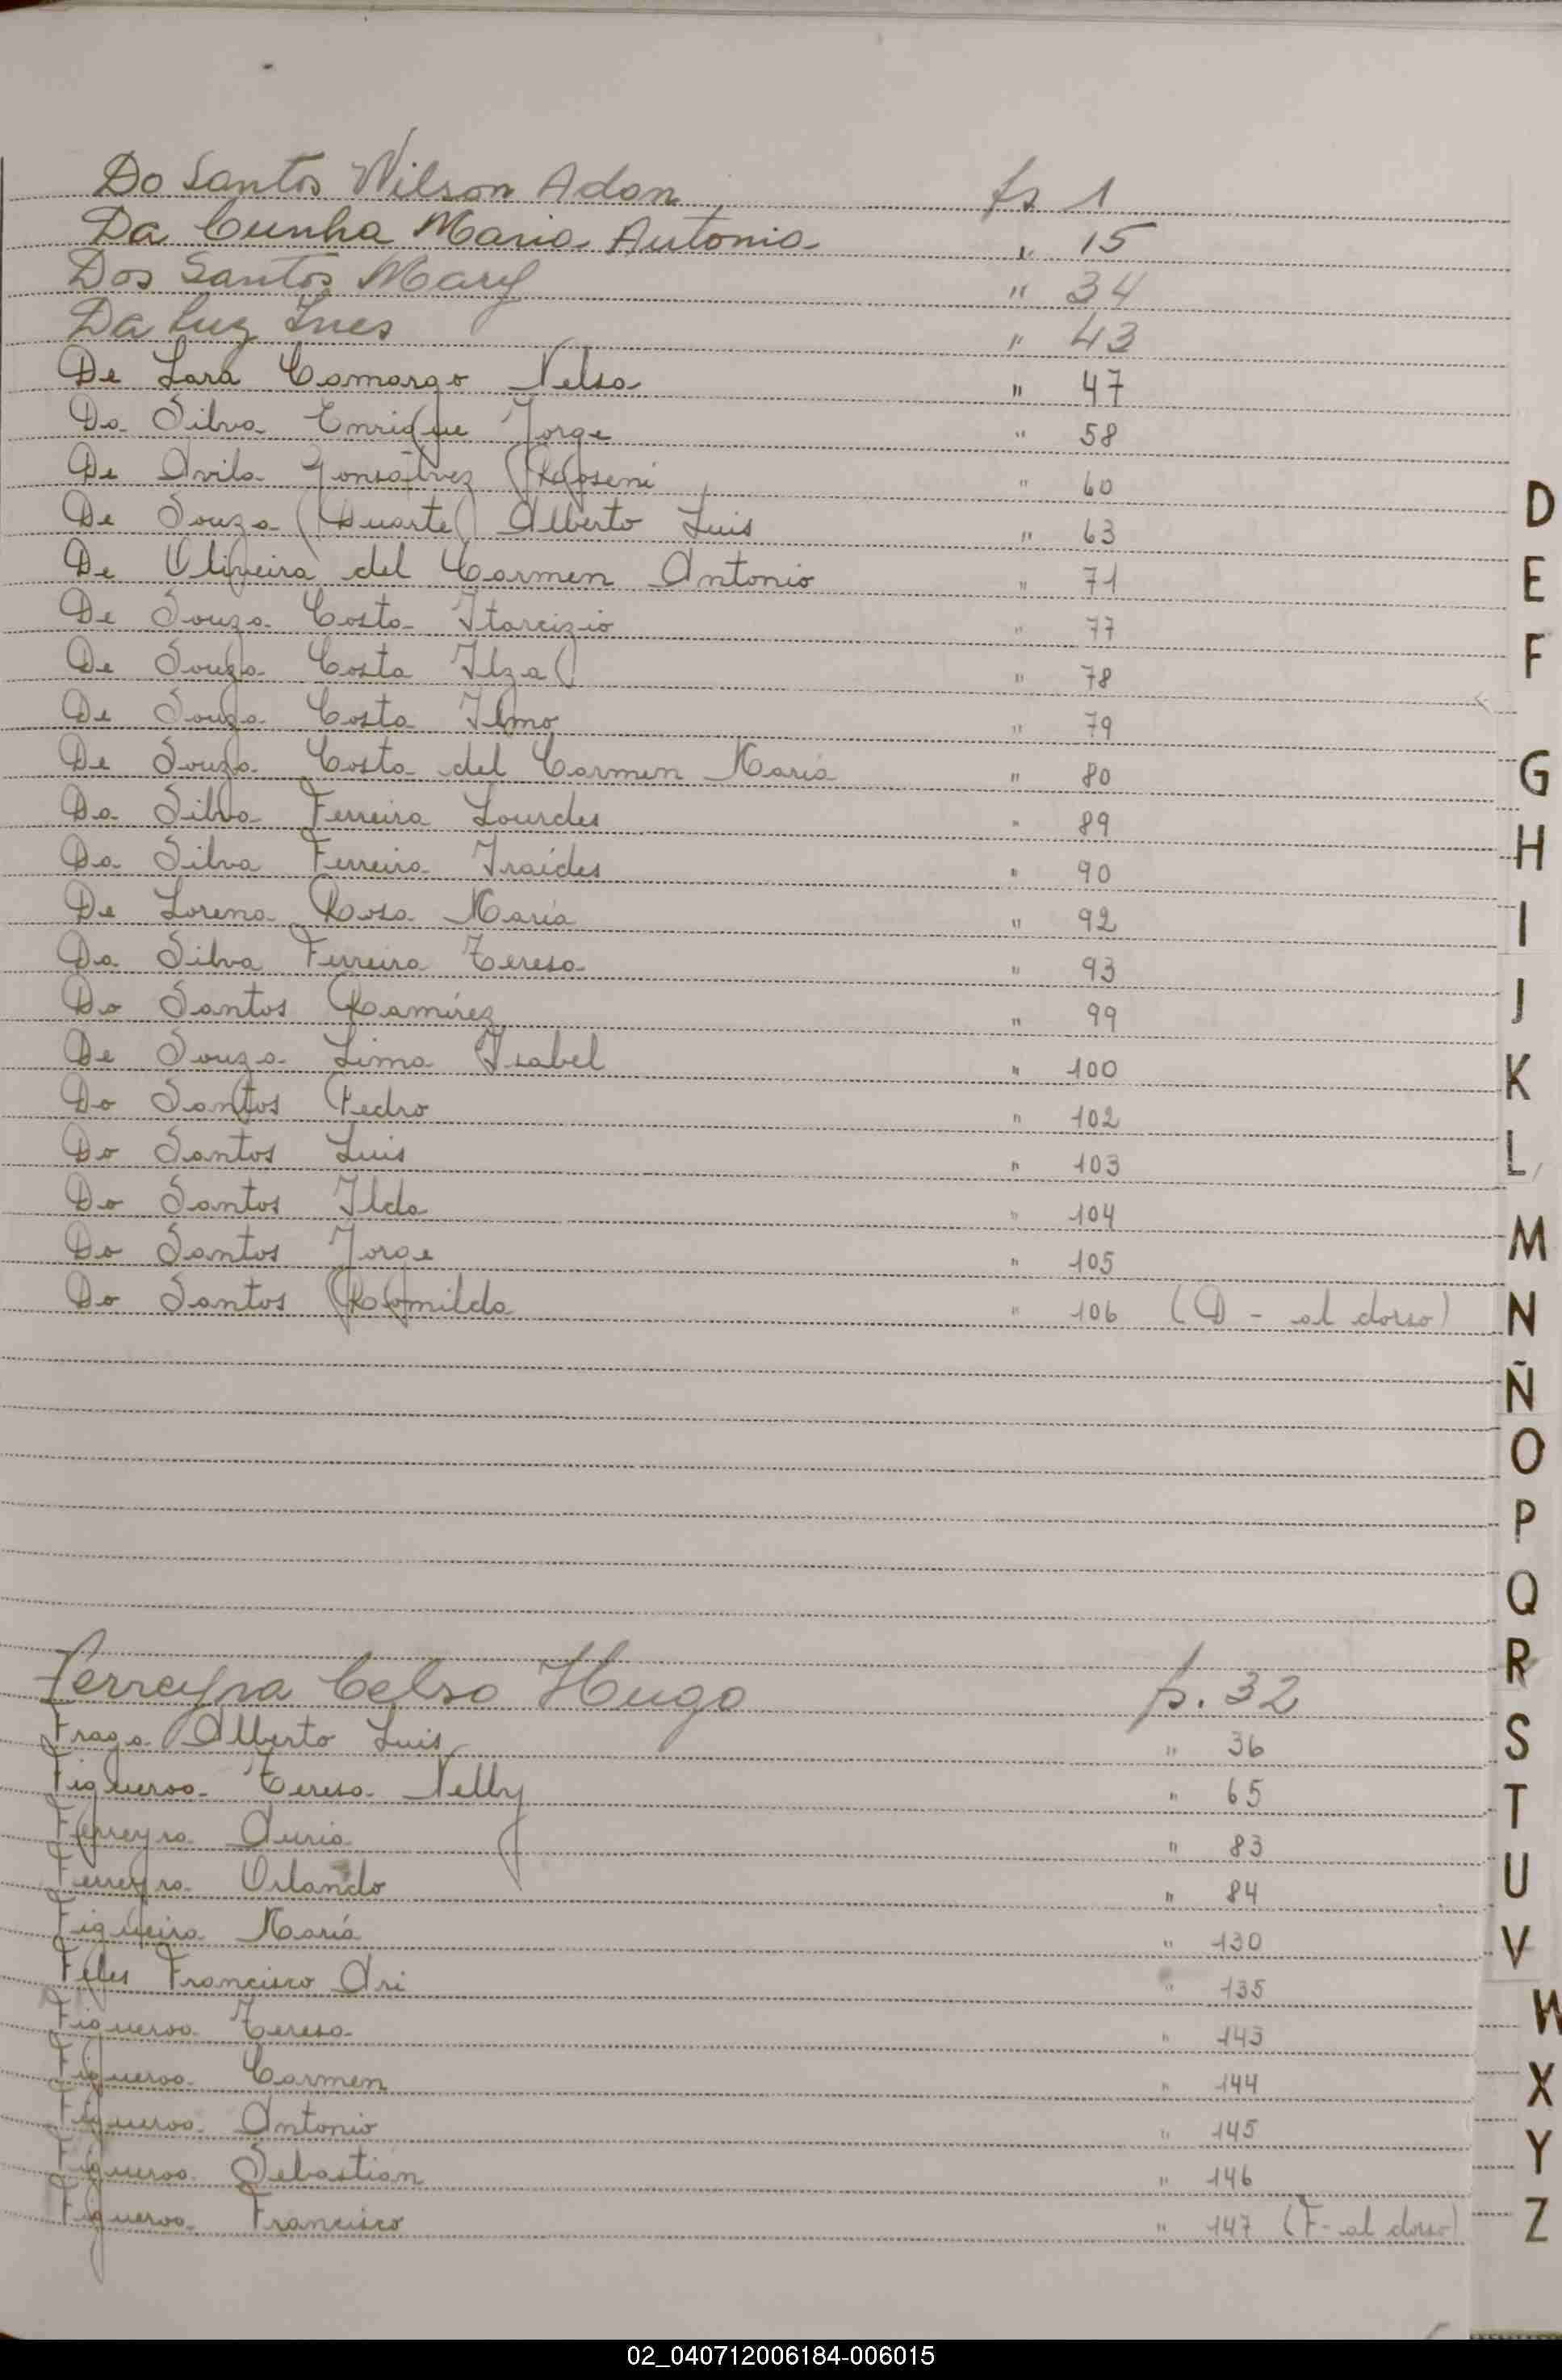 Do Santos Wilson Adan fs 1
Da Cunha Maria Antonia " 15
Dos Santos Mary " 34
Da Luz Ines " 43
De Lara Camargo Nelsa " 47
Da Silva Enrique Jorge " 58
De Avila Gonsálvez Roseni " 60
De Souza Duarte Alberto Luis " 63
De Oliveira del Carmen Antonio " 71
De Souza Costa Itarcizio " 77
De Souza Costa Ilza " 78
De Souza Costa Ilmo " 79
De Souza Costa del Carmen María " 80
Da Silva Ferreira Lourdes " 89
Da Silva Ferreira Iraídes " 90
De Lorena Rosa María " 92
Da Silva Ferreira Teresa " 93
Do Santos Ramírez " 99
De Souza Lima Isabel " 100
Do Santos Pedro " 102
Do Santos Luis " 103
Do Santos Ilda " 104
Do Santos Jorge " 105
Do Santos Romilda " 106 (D - al dorso)
Ferreyra Celso Hugo fs. 32
Fraga Alberto Luis " 36
Figueroa Teresa Nelly " 65
Ferreyra Auria " 83
Ferreyra Orlando " 84
Figueira María " 130
Francisco Ari " 135
Figueroa Teresa " 143
Figueroa Carmen " 144
Figueroa Antonio " 145
Figueroa Sebastián " 146
Figueroa Francisco " 147 (F - al dorso)
D
E
F
G
H
I
J
K
L
M
N
Ñ
O
P
Q
R
S
T
U
V
W
X
Y
Z
02_040712006184-006015